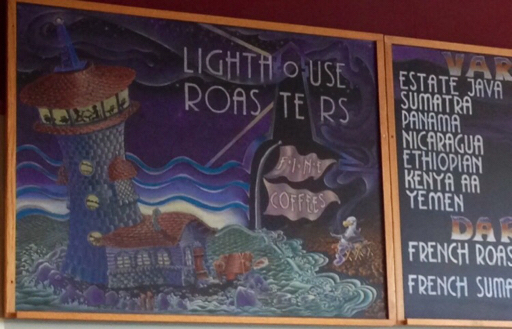 LIGHTHOUSE
ROASTERS
FINE
COFFEES
VAR
ESTATE JAVA
SUMATRA
PANAMA
NICARAGUA
ETHIOPIAN
KENYA AA
YEMEN
DAR
FRENCH ROAS
FRENCH SUMA